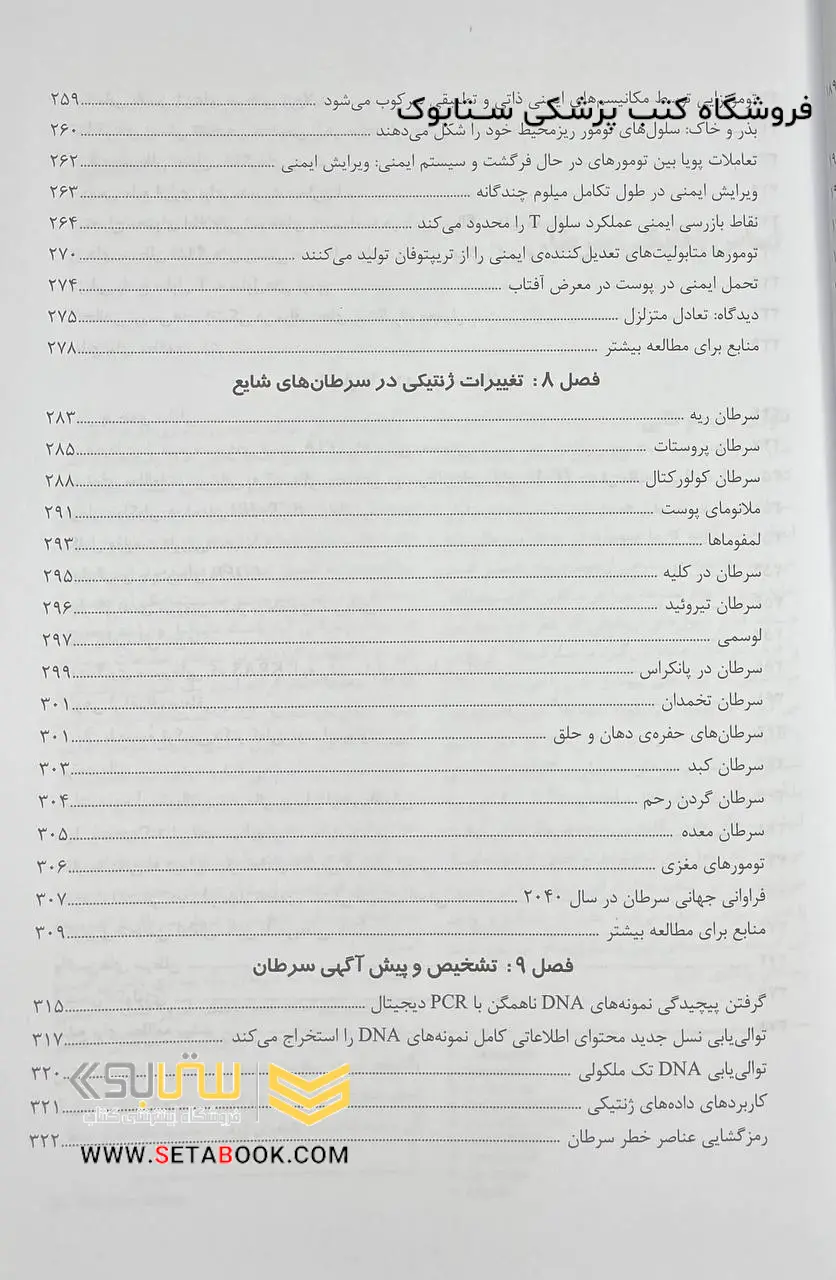 فروشگاه کتب پزشکی ستابوک
تومورزایی توسط مکانیسم‌های ایمنی ذاتی و تطبیقی سرکوب می‌شود ۲۵۹
بذر و خاک: سلول‌های تومور ریزمحیط خود را شکل می‌دهند ۲۶۰
تعاملات پویا بین تومورهای در حال فرگشت و سیستم ایمنی: ویرایش ایمنی ۲۶۲
ویرایش ایمنی در طول تکامل میلوم چندگانه ۲۶۳
نقاط بازرسی ایمنی عملکرد سلول T را محدود می‌کند ۲۶۴
تومورها متابولیت‌های تعدیل‌کننده‌ی ایمنی را از تریپتوفان تولید می‌کنند ۲۷۰
تحمل ایمنی در پوست در معرض آفتاب ۲۷۴
دیدگاه: تعادل متزلزل ۲۷۵
منابع برای مطالعه بیشتر ۲۷۸
فصل ۸: تغییرات ژنتیکی در سرطان‌های شایع
سرطان ریه ۲۸۳
سرطان پروستات ۲۸۵
سرطان کولورکتال ۲۸۸
ملانومای پوست ۲۹۱
لمفوماها ۲۹۳
سرطان در کلیه ۲۹۵
سرطان تیروئید ۲۹۶
لوسمی ۲۹۷
سرطان در پانکراس ۲۹۹
سرطان تخمدان ۳۰۱
سرطان‌های حفره‌ی دهان و حلق ۳۰۱
سرطان کبد ۳۰۳
سرطان گردن رحم ۳۰۴
سرطان معده ۳۰۵
تومورهای مغزی ۳۰۶
فراوانی جهانی سرطان در سال ۲۰۴۰ ۳۰۷
منابع برای مطالعه بیشتر ۳۰۹
فصل ۹: تشخیص و پیش آگهی سرطان
گرفتن پیچیدگی نمونه‌های DNA ناهمگن با PCR دیجیتال ۳۱۵
توالی‌یابی نسل جدید محتوای اطلاعاتی کامل نمونه‌های DNA را استخراج می‌کند ۳۱۷
توالی‌یابی DNA تک ملکولی ۳۲۰
کاربردهای داده‌های ژنتیکی ۳۲۱
رمزگشایی عناصر خطر سرطان ۳۲۲
ستابوک
فروشگاه اینترنتی کتاب
WWW.SETABOOK.COM